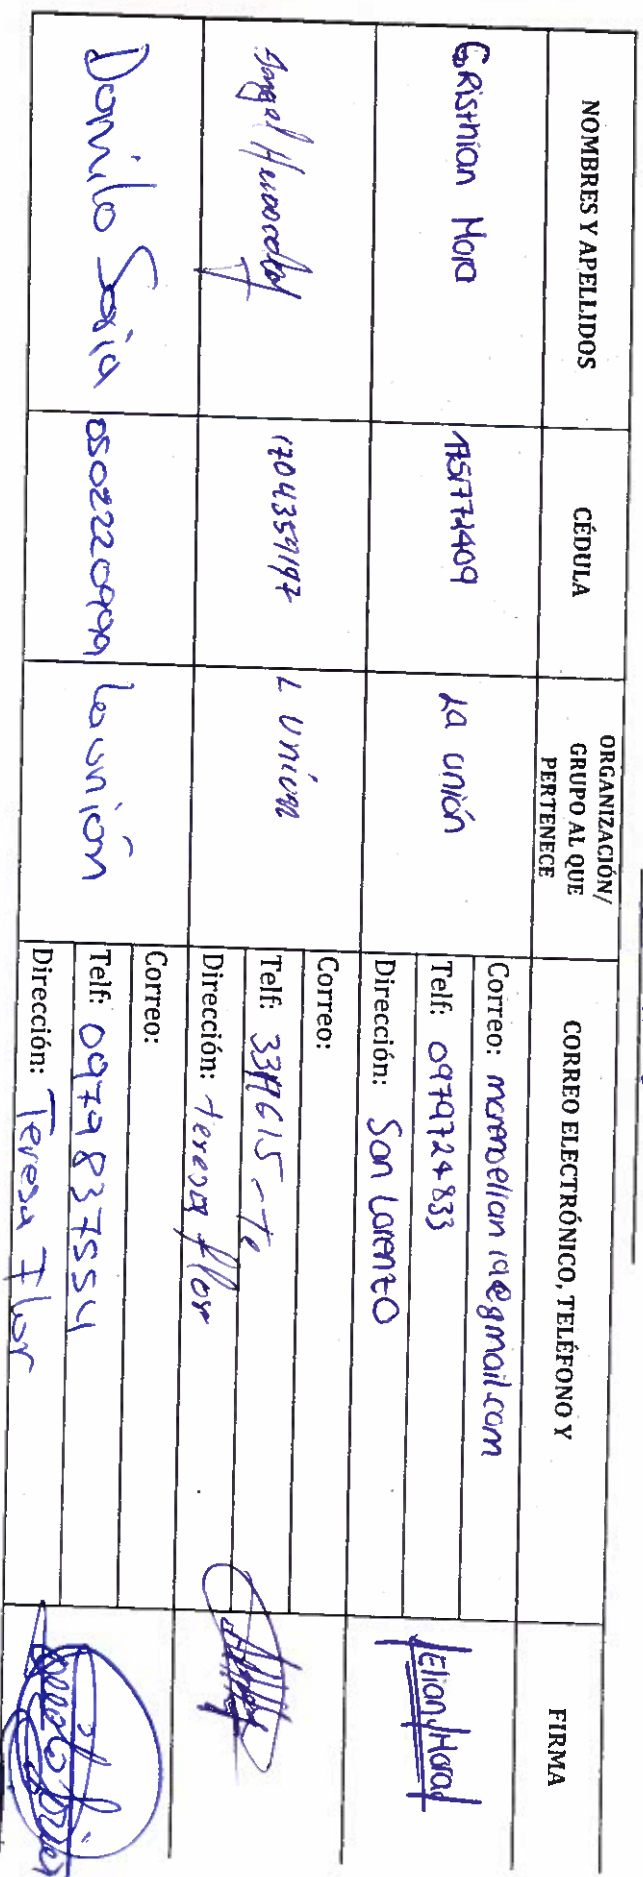 NOMBRES Y APELLIDOS
CÉDULA
ORGANIZACIÓN/
GRUPO AL QUE
PERTENECE
CORREO ELECTRÓNICO, TELÉFONO Y
FIRMA
Cristhian Mora
1751772409
La unión
Correo: morenoelian19@gmail.com
Telf: 0979724833
Dirección: San Lorenzo
Elian Mora
Angel
1704359197
L Unión
Correo:
Telf:
Dirección: teresa flor
Danilo Soria
La unión
Correo:
Telf: 0979837554
Dirección: Teresa Flor